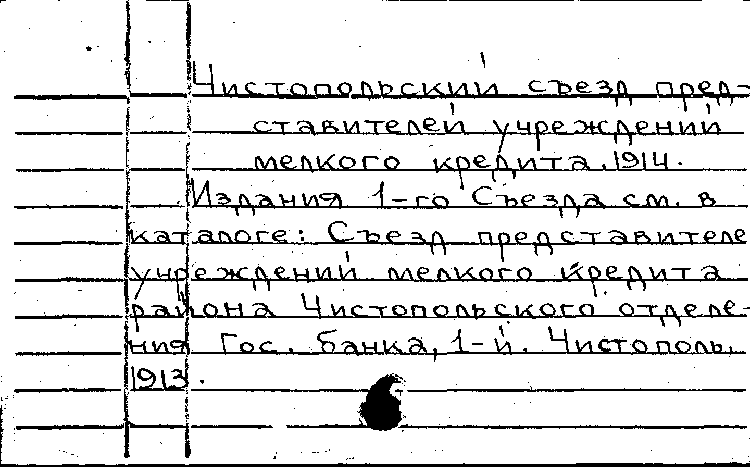 Чистопольский съезд пред-
ставителей учреждений
мелкого кредита. 1914.
Издания 1-го Съезда см. в
каталоге: Съезд представителе
учреждений мелкого кредита
района Чистопольского отделе-
ния Гос. банка, 1-й. Чистополь,
1913.